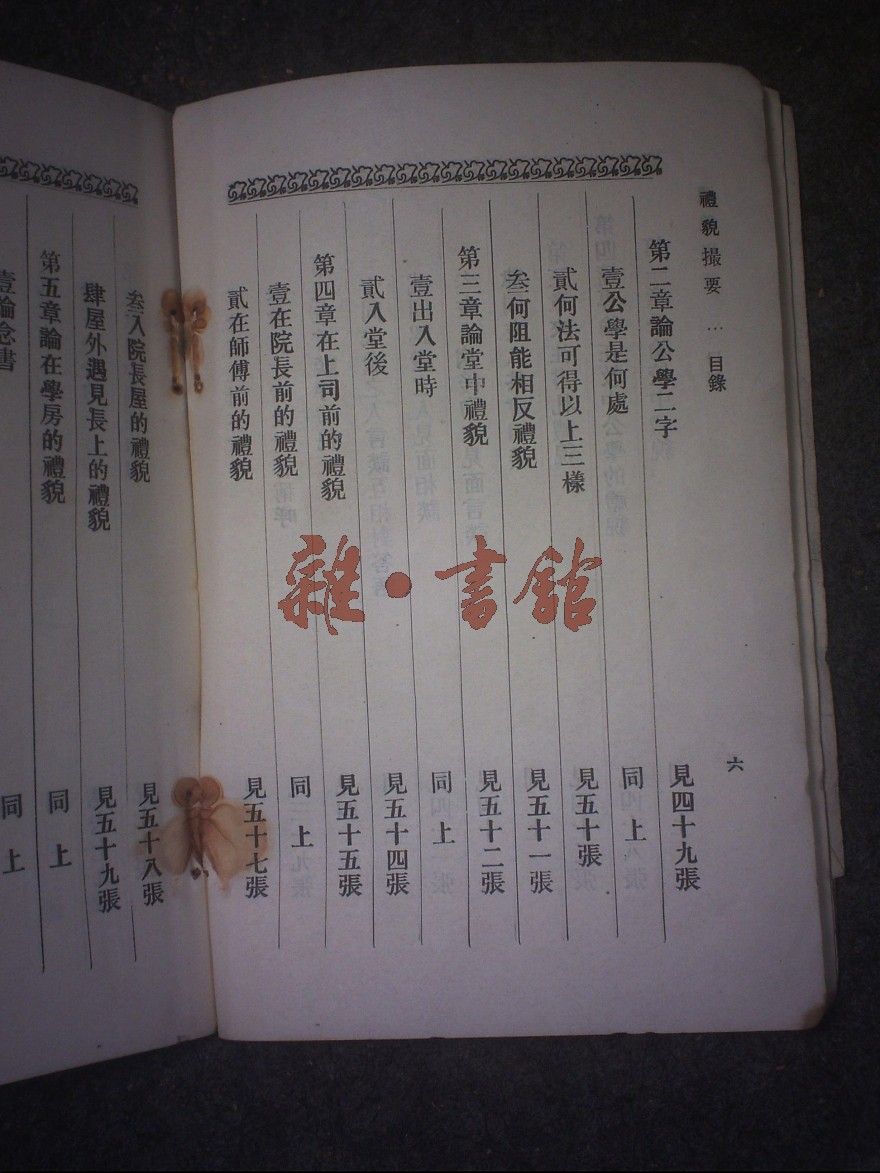 禮貌撮要 … 目錄
六
第二章論公學二字 見四十九張
壹公學是何處 同上
貳何法可得以上三樣 見五十張
叁何阻能相反禮貌 見五十一張
第三章論堂中禮貌 見五十二張
壹出入堂時 同上
貳入堂後 見五十四張
第四章在上司前的禮貌 見五十五張
壹在院長前的禮貌 同上
貳在師傅前的禮貌 見五十七張
叁入院長屋的禮貌 見五十八張
肆屋外遇見長上的禮貌 見五十九張
第五章論在學房的禮貌 同上
壹論念書 同上
雜·書館